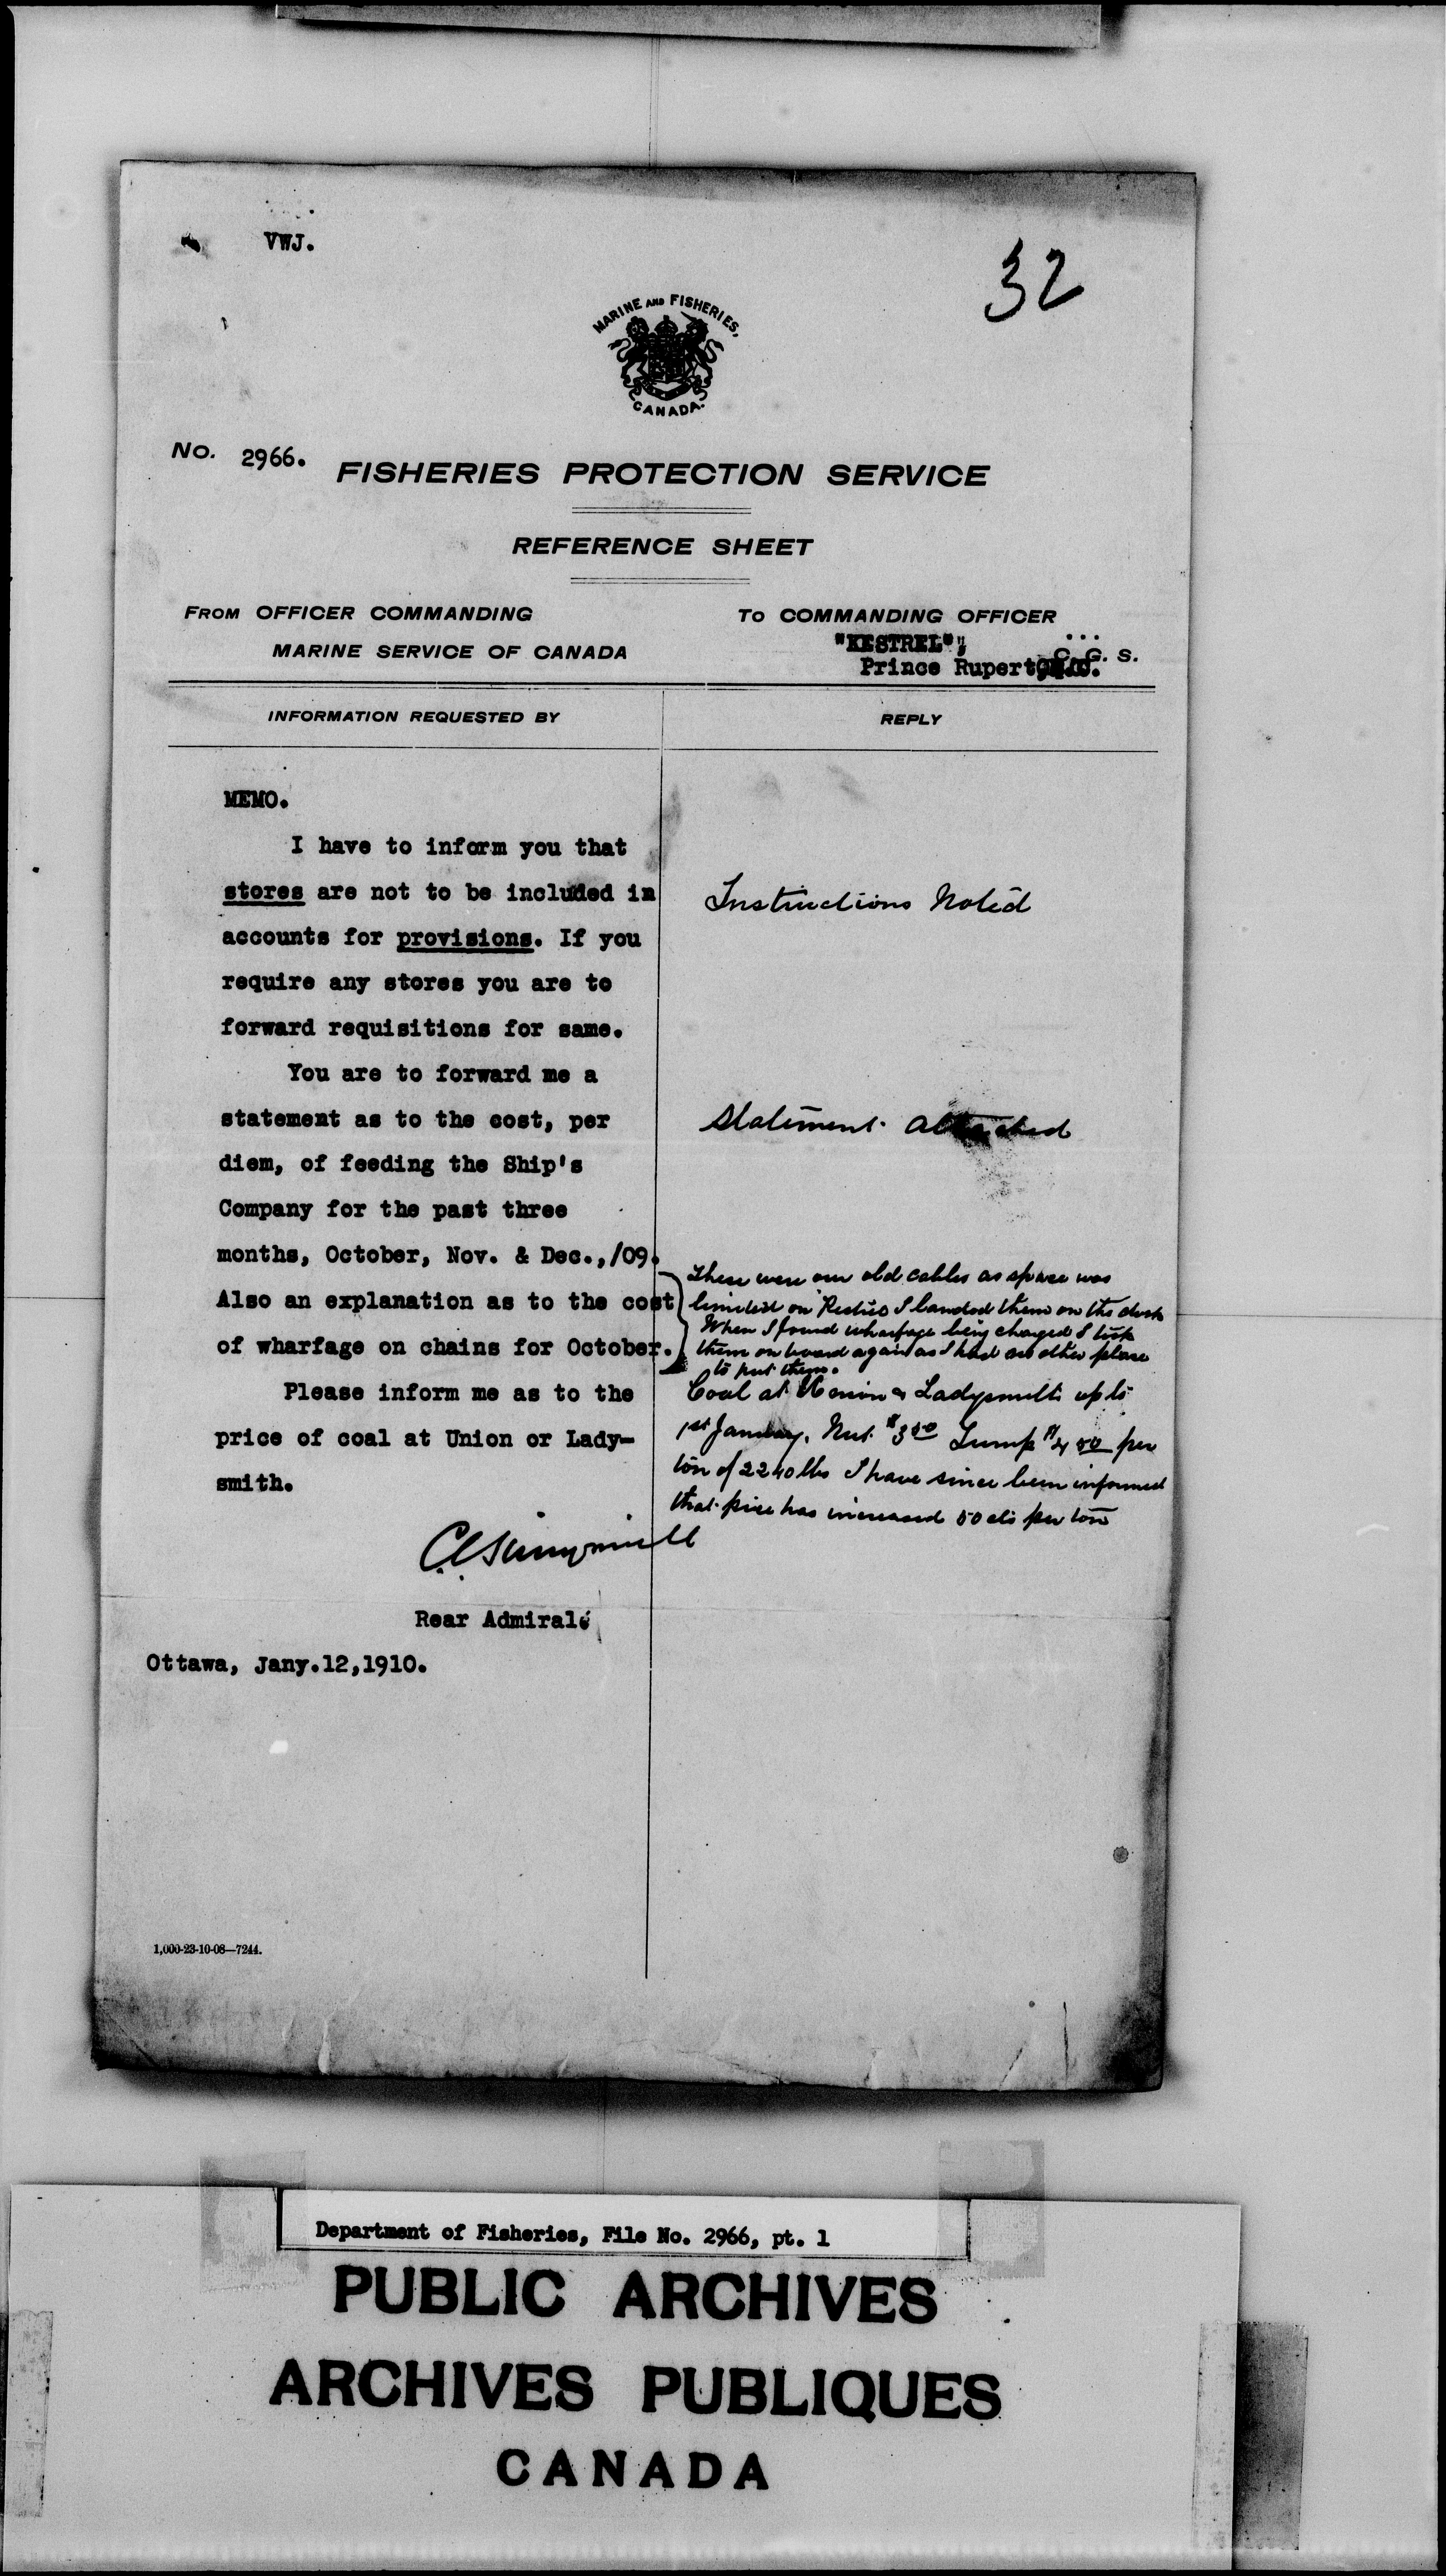 VWJ.
32
MARINE AND FISHERIES,
CANADA.
No. 2966.
FISHERIES PROTECTION SERVICE
REFERENCE SHEET
FROM OFFICER COMMANDING
MARINE SERVICE OF CANADA
TO COMMANDING OFFICER
"KESTREL",
C. G. S.
Prince Rupert,
INFORMATION REQUESTED BY
REPLY
MEMO.
I have to inform you that
stores are not to be included in
accounts for provisions. If you
require any stores you are to
forward requisitions for same.
You are to forward me a
statement as to the cost, per
diem, of feeding the Ship's
Company for the past three
months, October, Nov. & Dec.,/09.
Also an explanation as to the cost
of wharfage on chains for October.
Please inform me as to the
price of coal at Union or Lady-
smith.
Rear Admiral.
Ottawa, Jany.12,1910.
Instructions Noted
Statement attached
These were our old cables as space was
limited on I landed them on the dock
When I found wharfage being charged I took
them on board again as I had no other place
to put them.
Coal at Union & Ladysmith up to
1st January. Nut $3 50 Lump $4 50 per
ton of 2240 lbs I have since been informed
that price has increased 50 cts per ton
1,000-23-10-08—7244.
Department of Fisheries, File No. 2966, pt. 1
PUBLIC ARCHIVES
ARCHIVES PUBLIQUES
CANADA